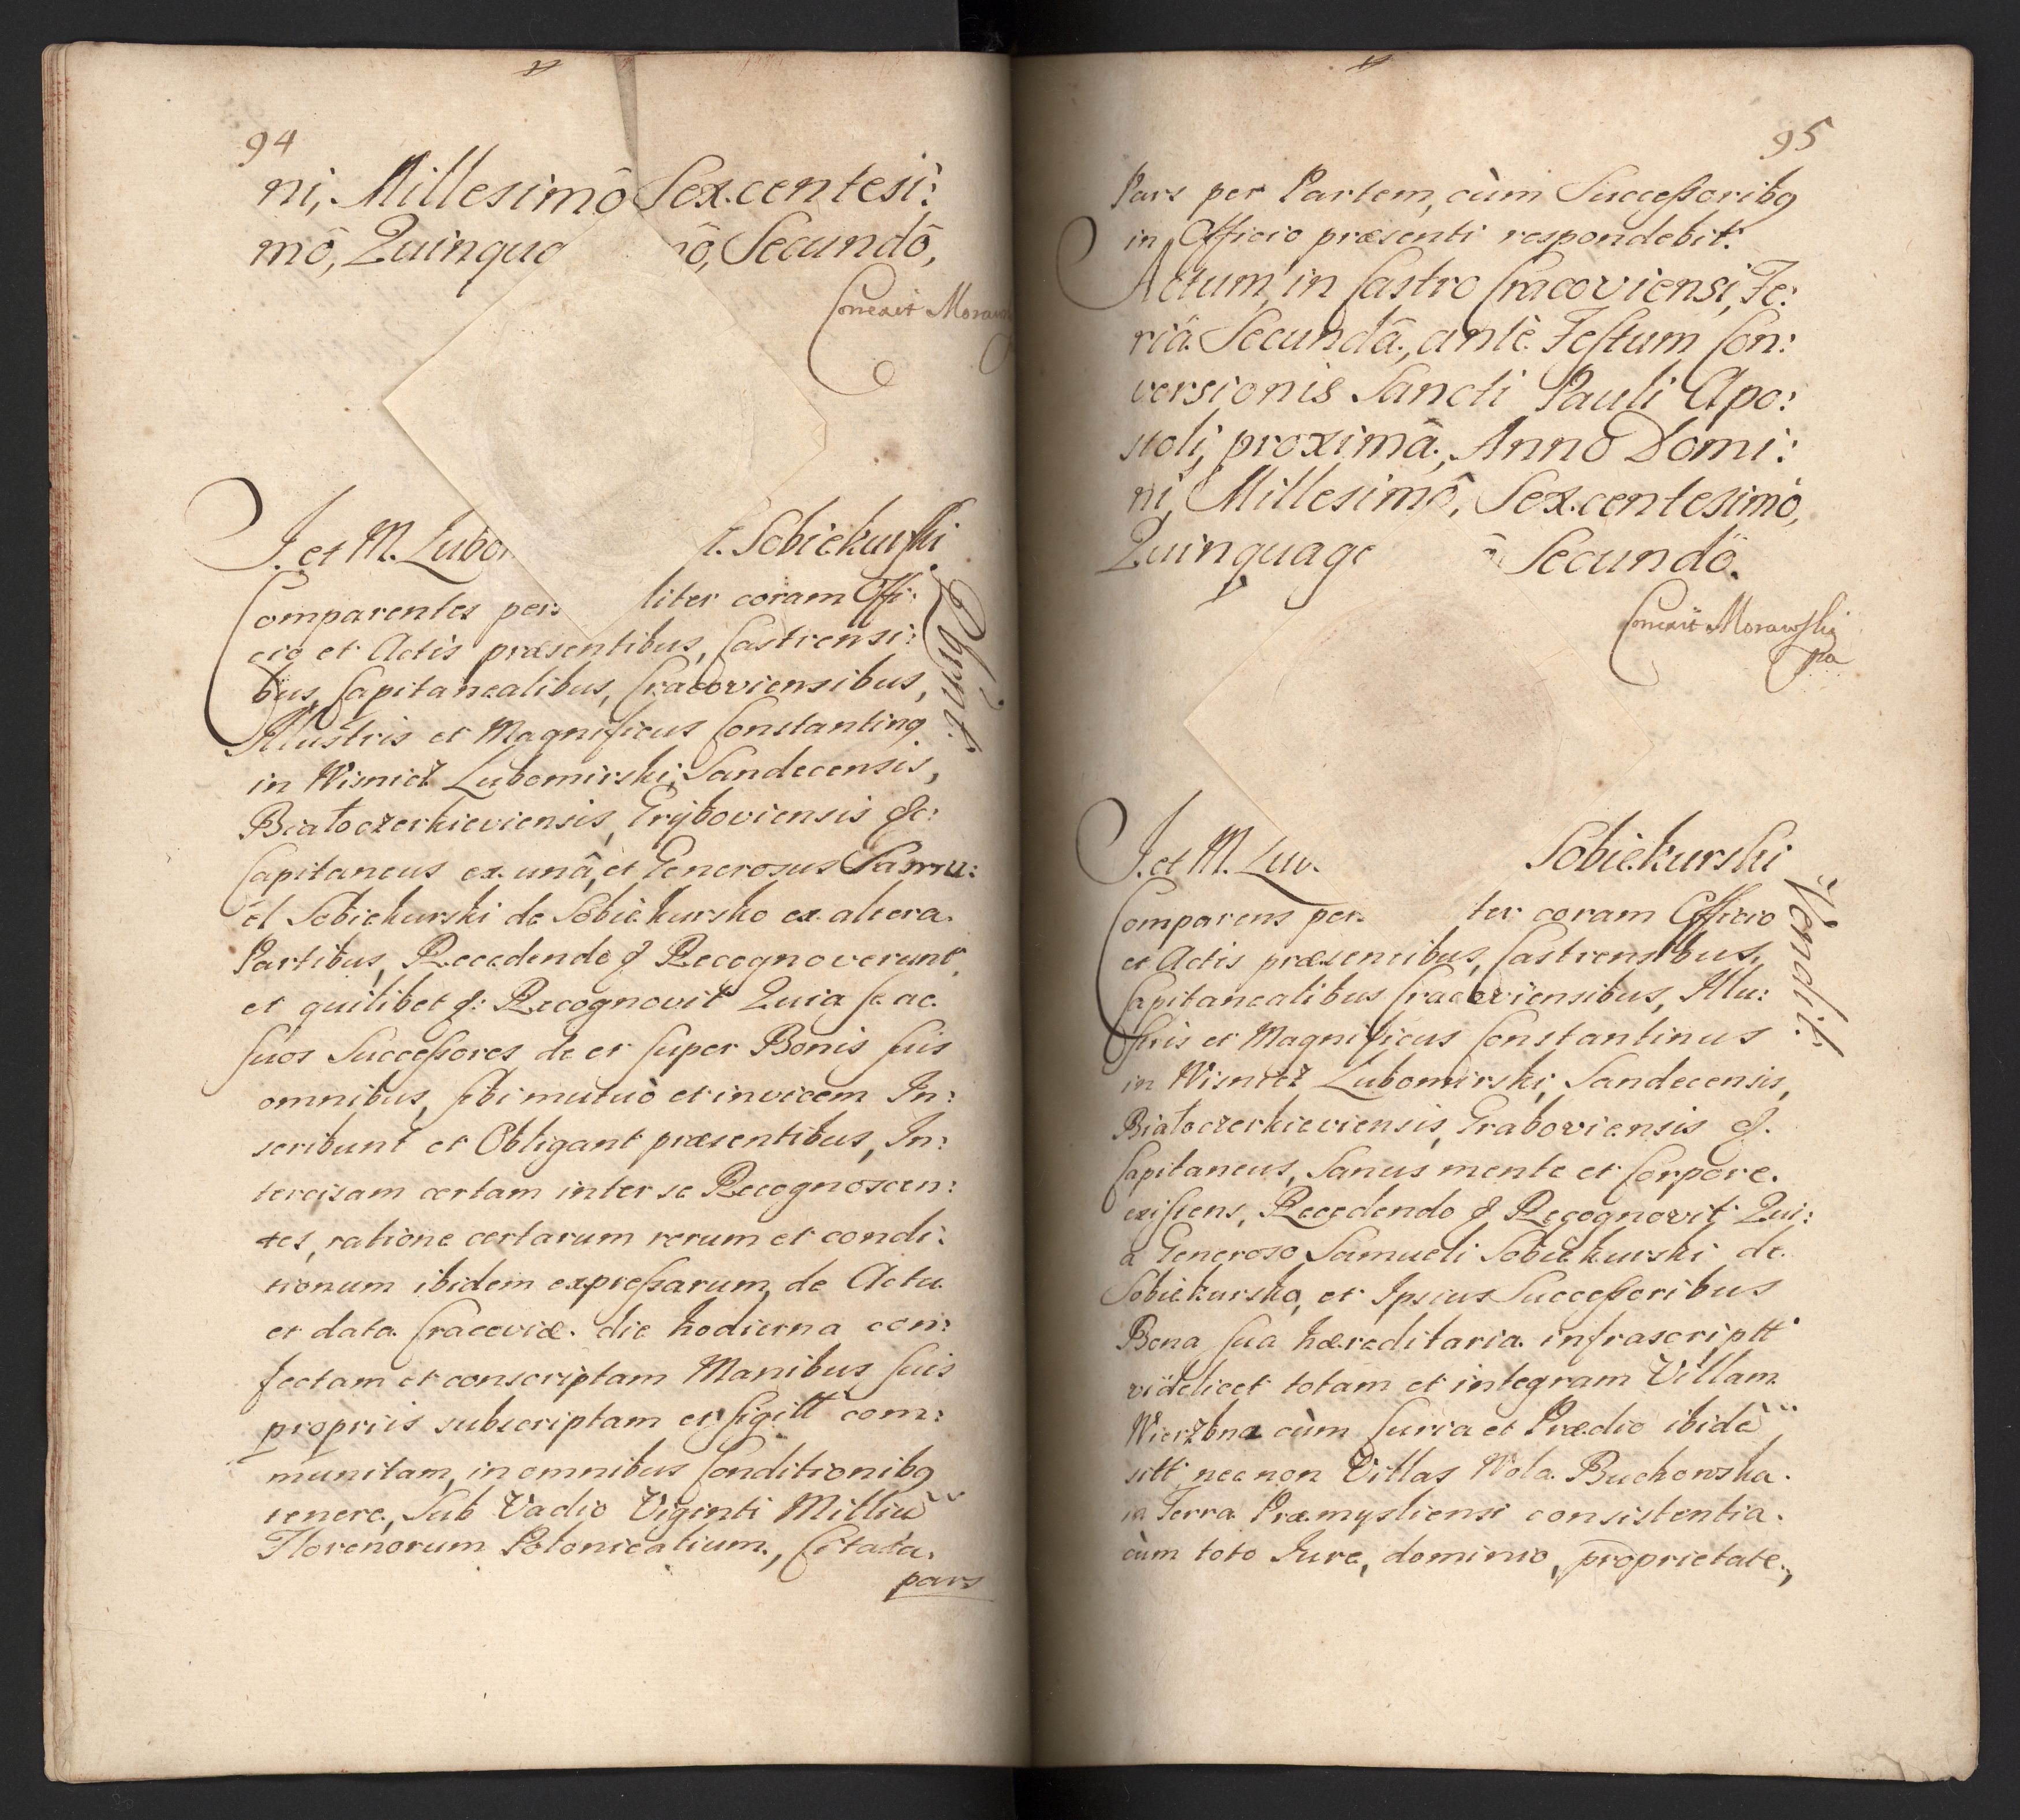 94
ni, Millesimô Sex.centesi:
mô, Quinqua mô, Secundô,
Conexit Moraw
J. et M. Lubo t. Sobiekurski
Comparentes per liter coram Offi:
cio et Actis præsentibus, Castrensi:
bus, Capitanealibus, Cracoviensibus,
Illustris et Magnificus Constantinq
in Wisnicz Lubomirski, Sandecensis,
Białoczerkieviensis, Grÿboviensis &c:
Capitaneus ex unâ, et Generosus Samu:
el Sobiekurski de Sobiekursko ex altera.
Partibus, Recedendo & Recognoverunt,
et quilibet &: Recognovit Quia se ac
suos Successores de et super Bonis suis
omnibus, sibi mutuò et invicem In:
scribunt et Obligant præsentibus, In:
tercisam certam inter se Recognoscen:
tes, ratione certarum rerum et condi:
tionum ibidem expressarum, de Actu
et data Cracoviæ die hodierna con:
fectam et conscriptam Manibus suis
propriis subscriptam et sigill com:
munitam, in omnibus Conditionibq
tenere, Sub Vadio Viginti Milliũ
Florenorum Polonicalium, Citata.
pars
95
Pars per Partem, cùm Successoribq
in Officio præsenti respondebit.
Actum in Castro Cracoviensi, Fe:
riâ Secundâ, antè Festum Con:
versionis Sancti Pauli Apo:
stoli, proximâ, Annô Domi:
ni, Millesimô, Sex.centesimô,
Quinquage ô Secundô.
Conexit Morawski
J. et M. Lub. Sobiekurski
Comparens per. ter coram Officio
et Actis præsentibus, Castrensibus,
Capitanealibus Cracoviensibus, Illu:
stris et Magnificus Constantinus
in Wisnicz Lubomirski, Sandecensis,
Białoczerkieviensis, Graboviensis &.
Capitaneus, Sanus mente et Corpore.
existens, Recedendo & Recognovit Qui:
a Generoso Samueli Sobiekurski de
Sobiekursko, et Ipsius Successoribus
Bona sua hæreditaria infrascriptt
videlicet totam et integram Villam
Wierzbna cùm Curia et Prædio ibidẽ
sitt necnon Villas Wola Buchowska
in Terra Præmysliensi consistentia
cùm toto Jure, dominio, proprietate,
Vendit: